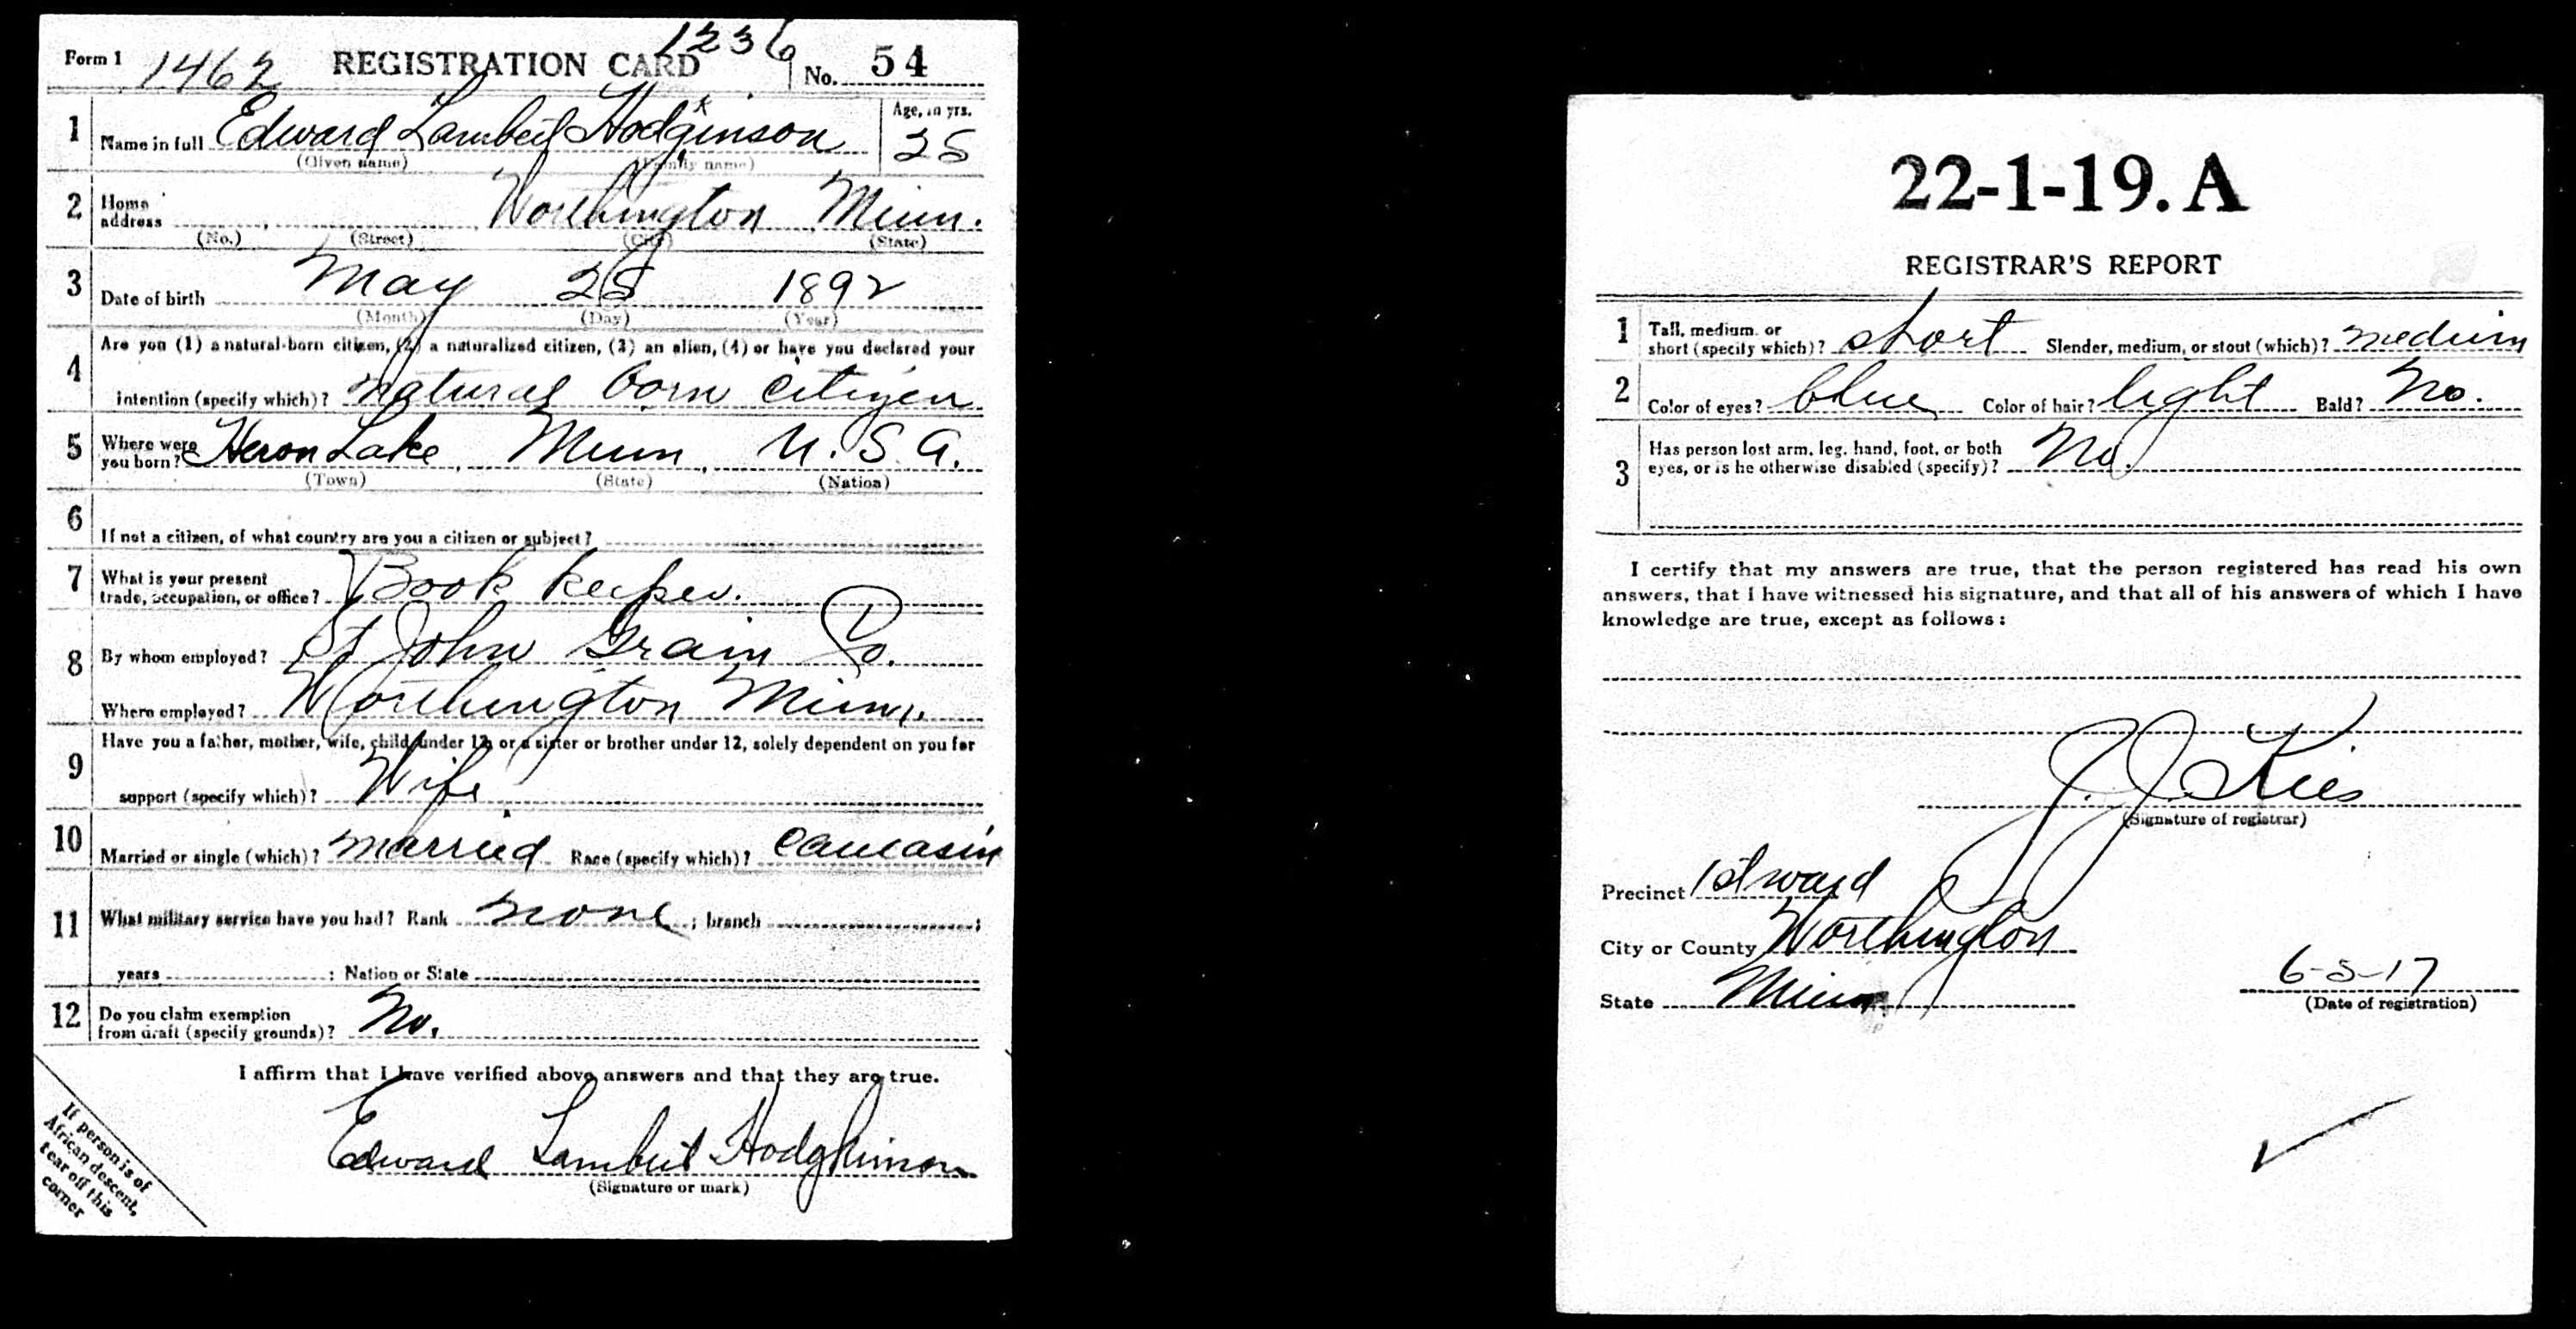 1236
Form 1 1462 REGISTRATION CARD No. 54
1 Name in full Edward Lambert Hodgkinson Age, in yrs. 25
(Given name) (Family name)
2 Home address Worthington Minn.
(No.) (Street) (City) (State)
3 Date of birth May 25 1892
(Month) (Day) (Year)
4 Are you (1) a natural-born citizen, (2) a naturalized citizen, (3) an alien, (4) or have you declared your
intention (specify which)? natural born citizen
5 Where were you born? Heron Lake, Minn, U.S.A.
(Town) (State) (Nation)
6 If not a citizen, of what country are you a citizen or subject?
7 What is your present trade, occupation, or office? Book keeper.
8 By whom employed? St John Grain Co.
Where employed? Worthington Minn.
9 Have you a father, mother, wife, child under 12, or a sister or brother under 12, solely dependent on you for
support (specify which)? Wife
10 Married or single (which)? married Race (specify which)? Caucasin
11 What military service have you had? Rank none; branch ;
years ; Nation or State
12 Do you claim exemption from draft (specify grounds)? No.
I affirm that I have verified above answers and that they are true.
Edward Lambert Hodgkinson
(Signature or mark)
If person is of
African descent,
tear off this
corner
22-1-19. A
REGISTRAR'S REPORT
1 Tall, medium, or short (specify which)? short Slender, medium, or stout (which)? medium
2 Color of eyes? blue Color of hair? light Bald? No.
3 Has person lost arm, leg, hand, foot, or both
eyes, or is he otherwise disabled (specify)? No.
I certify that my answers are true, that the person registered has read his own
answers, that I have witnessed his signature, and that all of his answers of which I have
knowledge are true, except as follows:
J. J. Kies
(Signature of registrar)
Precinct 1st ward
City or County Worthington
State Minn. 6-5-17
(Date of registration)